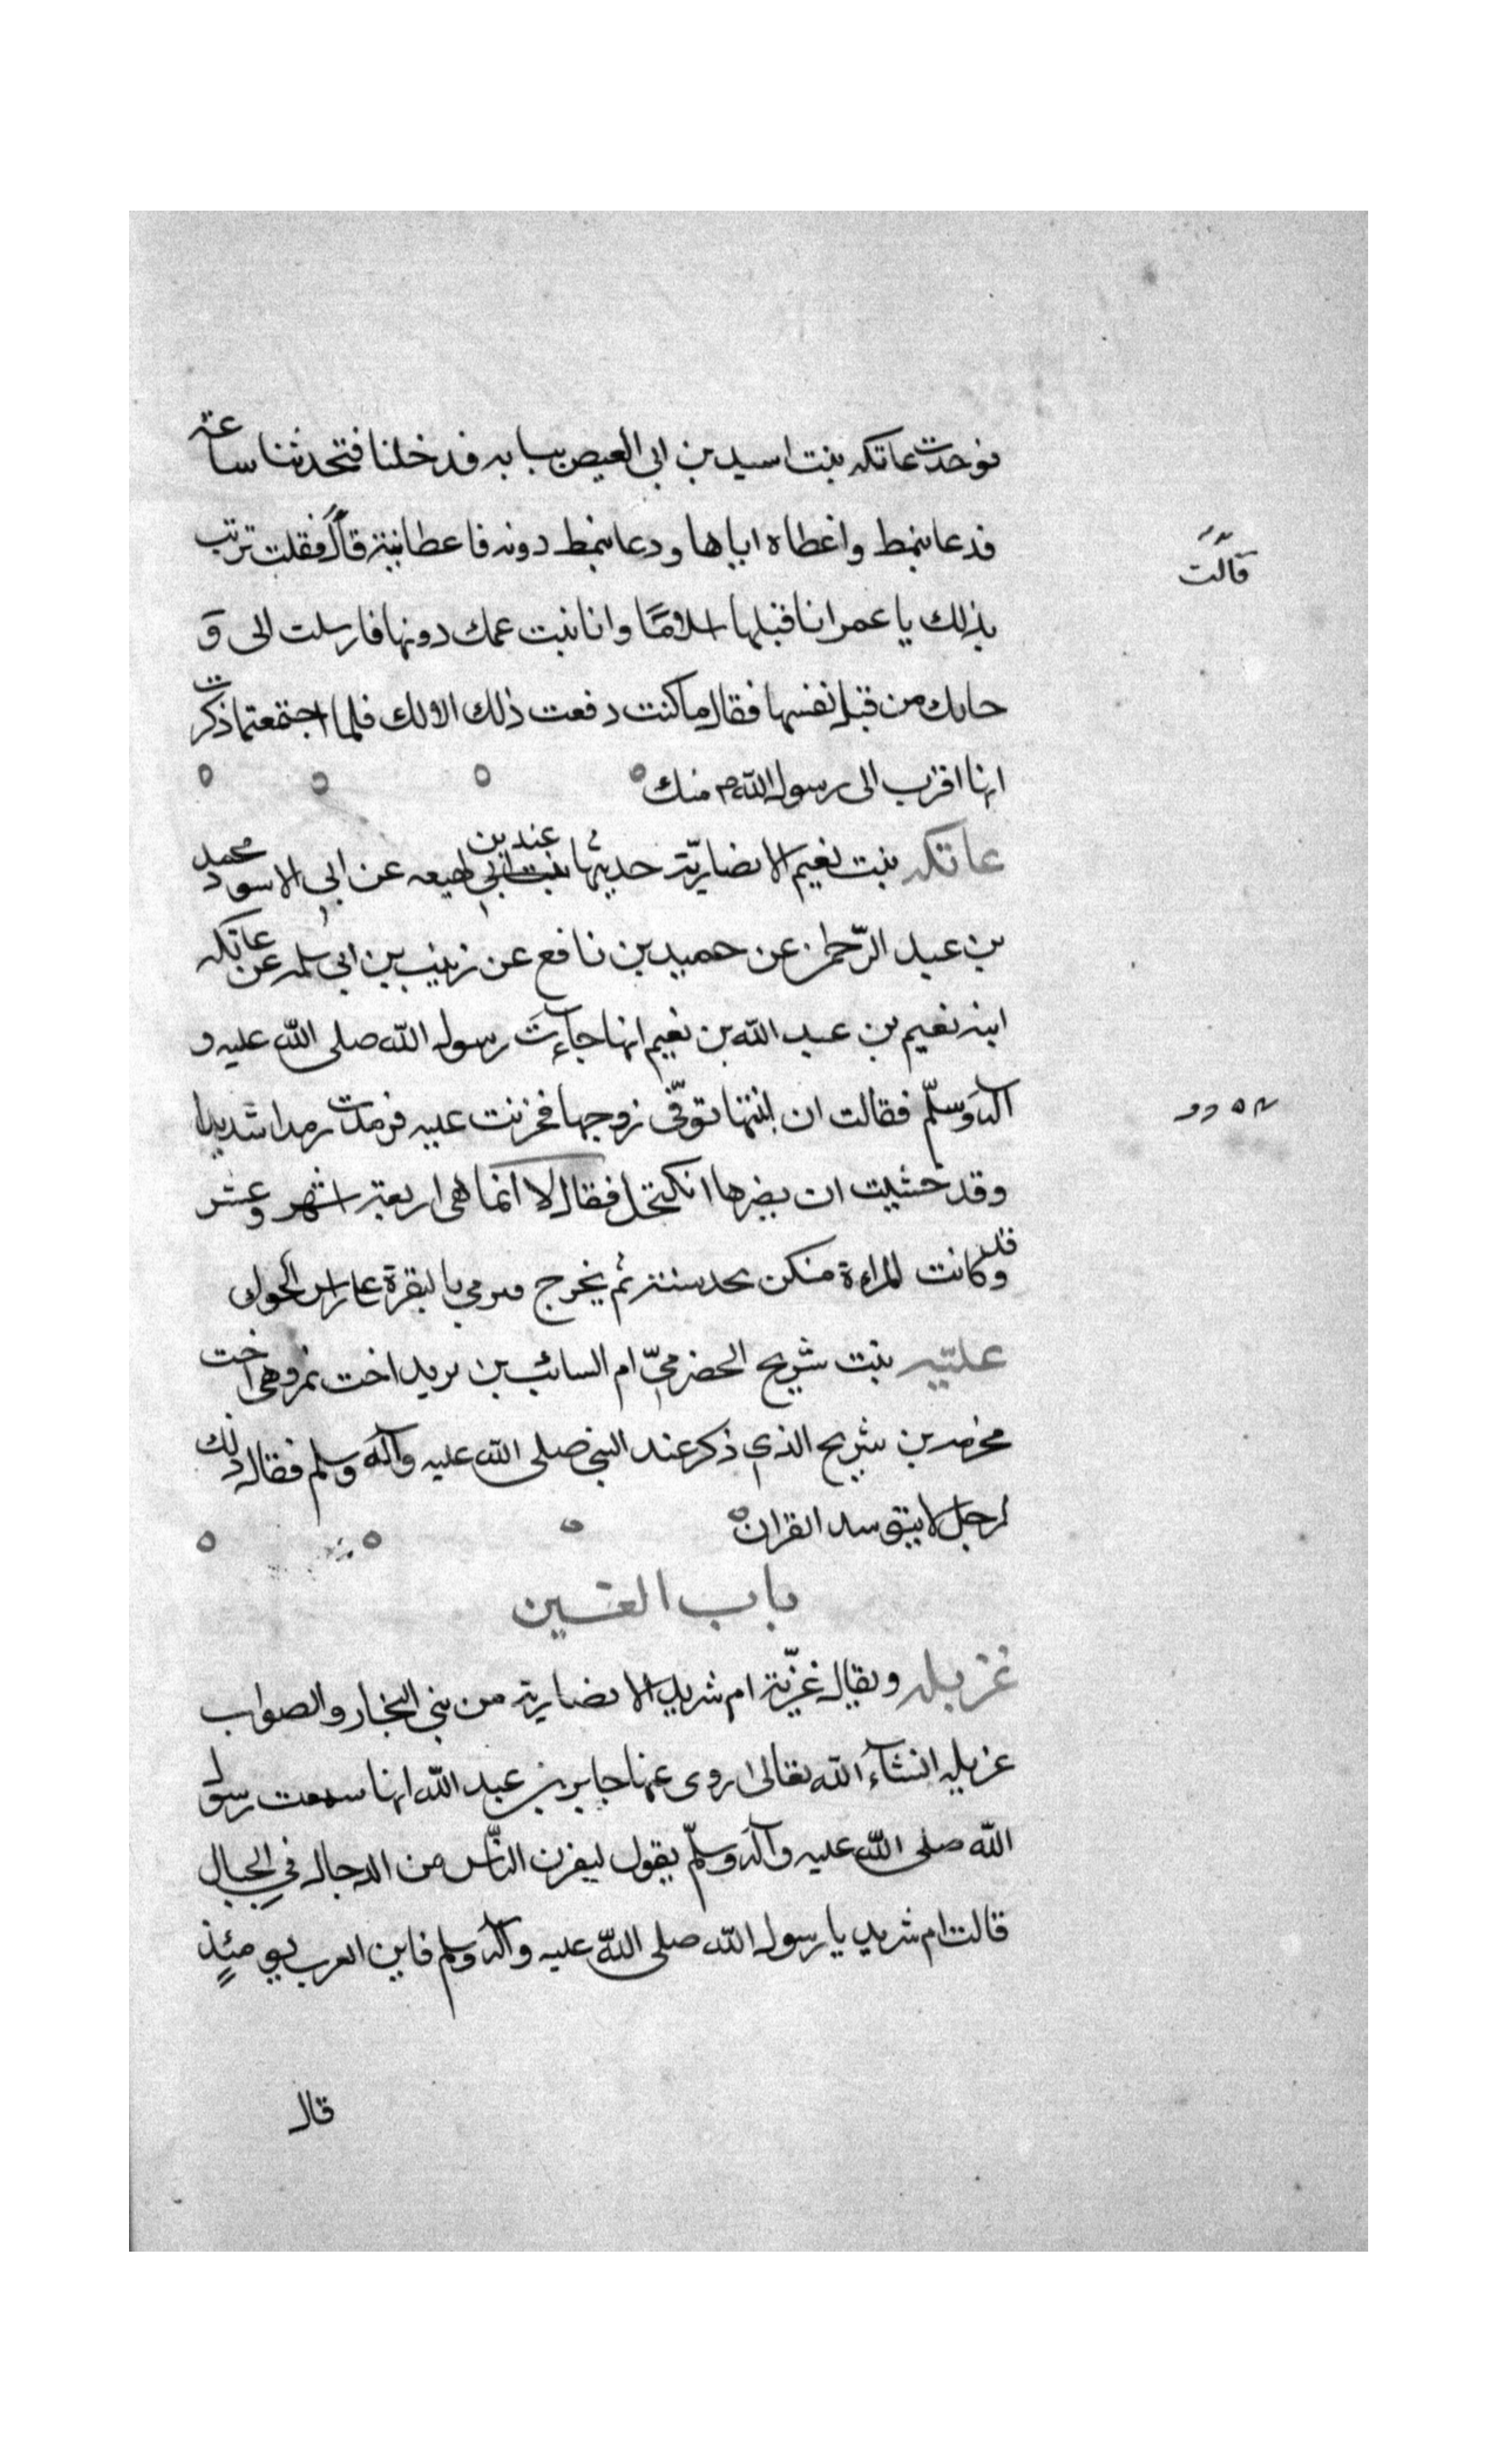 فوجدت عاتكه بنت اسيد بن ابى العيص ببابه فدخلنا فتحدثنا ساعة
فدعا بنمط واعطاه اياها ودعا بنمط دونه فاعطانيه قال فقلت تربت
قالت
يذلك يا عمر انا قبلها اسلامًا وانا بنت عمك دونها فارسلت الى و
حاىك من قبل نفسها فقال ما كنت دفعت ذلك الا لك فلما اجتمعتما ذكرت
انها اقرب الى رسول الله ص منك
عاتكه بنت نعيم الانصاريّة حديثها عند بن لهيعه عن ابى الاسود محمد
بن عبد الرّحمن عن حميد بن نافع عن زينب بن ابى سلمه عن عاتكه
ابنه نعيم بن عبد الله بن نعيم انها جآءت رسول الله صلى الله عليه و
آله وسلّم فقالت ان ابنتها توفّى زوجها فحزنت عليه فرمدت رمدا شديدا
وقد خشيت ان يضرها انكتحل فقال لا انما هى اربعة اشهر وعشر
وقد كانت المراءة منكن تحد سنة ثم يخرج فترمي بالبقرة عاراس الحول
عليّه بنت شريح الحضرميّ ام السائب بن يزيد اخت نمر وهى اخت
مخرمه بن شريح الذي ذكر عند النبى صلى الله عليه وآله وسلم فقال ذلك
لرجل لا يتوسد القران
باب الغين
غزيله ويقال غزّية ام شريك الانصاريه من بنى النجار والصواب
غزيله انشآء الله تعالى روى عنها جابر بن عبد الله انها سمعت رسول
الله صلى الله عليه وآله وسلّم يقول ليفرن النّاس من الدجال في الجبال
قالت ام شريك يا رسول الله صلى الله عليه وآله وسلم فاين العرب يومئذٍ
قال